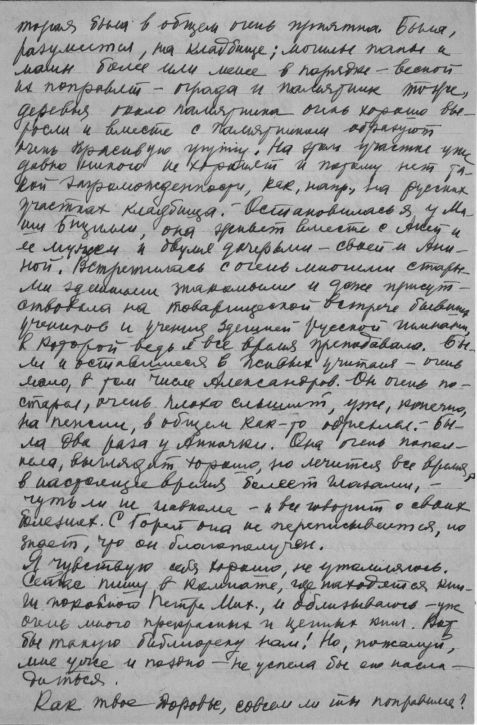 торая была в общем очень приятна. Была,
разумеется, на кладбище; могилы папы и
мамы более или менее в порядке – весной
их поправят – ограда и памятник тоже,
деревья около памятника очень хорошо вы-
росли и вместе с памятником образуют
очень красивую группу. На этом участке уже
давно никого не хоронят и потому нет та-
кой загроможденности, как, напр., на других
участках кладбища. – Остановилась я у Ма-
ни, она живет вместе с Аней и
ее мужем и двумя дочерьми – своей и Ани-
ной. Встретилась с очень многими стары-
ми здешними знакомыми и даже присут-
ствовала на товарищеской встрече бывших
учеников и учениц здешней русской гимназии,
в которой ведь я все время преподавала. Бы-
ли и оставшиеся в живых учителя – очень
мало, в том числе Александров. Он очень по-
старел, очень плохо слышит, уже, конечно,
на пенсии, в общем как-то одряхлел. – Бы-
ла два раза у Анночки. Она очень попол-
нела, выглядит хорошо, но лечится все время,
в настоящее время болеет глазами, –
чуть ли не – и все говорит о своих
болезнях. С она не переписывается, но
знает, что он благополучен.
Я чувствую себя хорошо, не утомлялось.
Сейчас пишу в комнате, где находятся кни-
ги покойной Петра Мих., и облизываюсь – уж
очень много прекрасных и ценных книг. Вот
бы такую библиотеку нам! Но, пожалуй,
мне уже и поздно – не успела бы ею насла-
диться.
Как твое здоровье, совсем ли ты поправился?